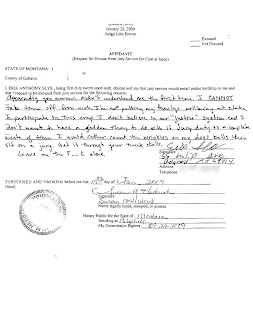 January 26, 2009
Judge John Brown
Excused
Not Excused
AFFIDAVIT
(Request for Excusal from Jury Service for Case at Issue)
STATE OF MONTANA )
County of Gallatin )
I, ERIK ANTHONY SLYE, being first duly sworn upon oath, depose and say that jury service would entail undue hardship on me and
that I request to be excused from jury service for the following reasons:
Apparently you morons didn't understand me the first time. I CANNOT
take time off from work. I'm not putting my familys wellbeing at stake
to participate in this crap. I don't believe in our "justice" system and I
don't want to have a goddam thing to do with it. Jury duty is a complete
waste of time. I would rather count the wrinkles on my dogs balls than
sit on a jury. Get it through your thick skulls.
Leave me the F__K alone.
Signature
Address
Telephone
SUBSCRIBED AND SWORN to before me this day of Jan, 2009
(Seal)
Name legibly typed, stamped, or printed
Notary Public for the State of Montana
Residing at Belgrade
My Commission Expires